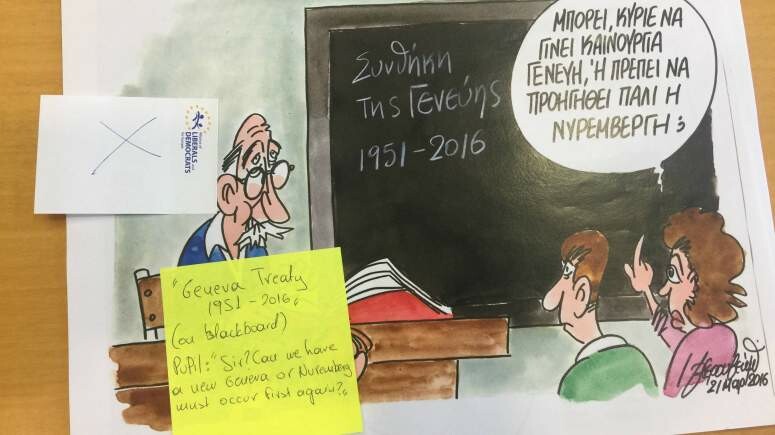 ΜΠΟΡΕΙ, ΚΥΡΙΕ ΝΑ
ΓΙΝΕΙ ΚΑΙΝΟΥΡΓΙΑ
ΓΕΝΕΥΗ, Ή ΠΡΕΠΕΙ ΝΑ
ΠΡΟΗΓΗΘΕΙ ΠΑΛΙ Η
ΝΥΡΕΜΒΕΡΓΗ;
Συνθήκη
της Γενεύης
1951-2016
LIBERALS AND
DEMOCRATS
"Geneva Treaty
1951-2016"
(on blackboard)
Pupil: "Sir? Can we have
a new Geneva or Nuremberg
must occur first again?"
21 Μαρ 2016